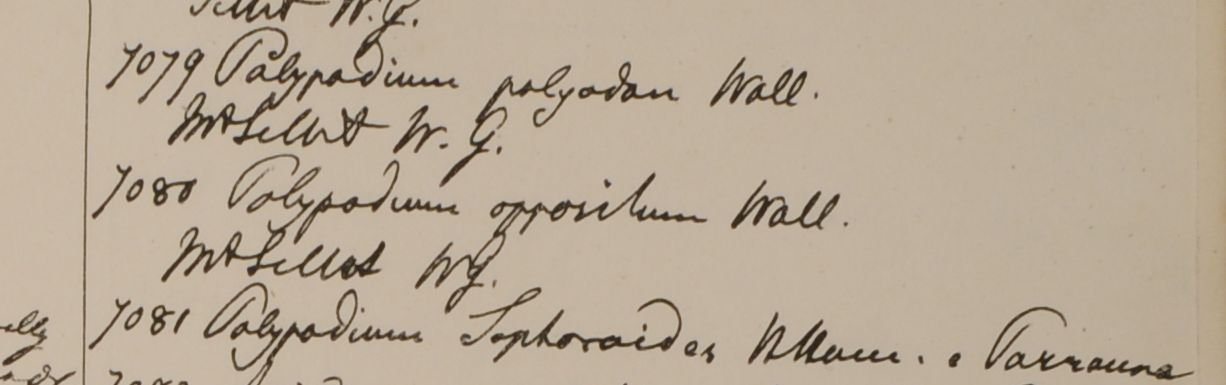 W. G.
7079 Polypodium polyodon Wall.
Mt Sillet W. G.
7080 Polypodium oppositum Wall.
Mt Sillet WG.
7081 Polypodium Sophoroides